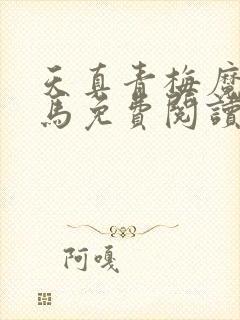 天真青梅魔
馬免費閱讀
阿嘎